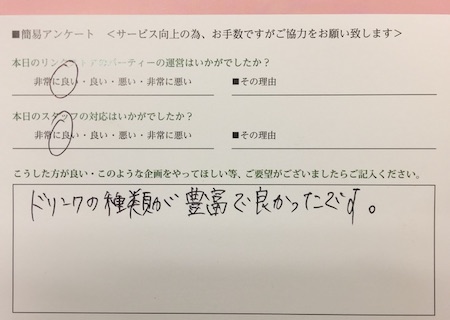 ■簡易アンケート ＜サービス向上の為、お手数ですがご協力をお願い致します＞
本日のリンクパーティーの運営はいかがでしたか？
非常に良い・良い・悪い・非常に悪い ■その理由
本日のスタッフの対応はいかがでしたか？
非常に良い・良い・悪い・非常に悪い ■その理由
こうした方が良い・このような企画をやってほしい等、ご要望がございましたらご記入ください。
ドリンクの種類が豊富で良かったです。